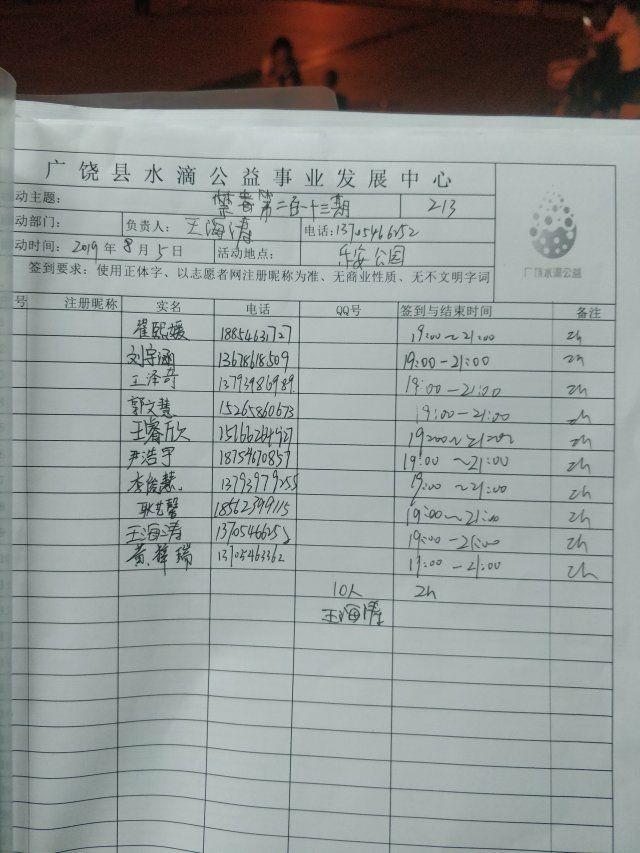 广饶县水滴公益事业发展中心
动主题: 禁毒第二百一十三期 213
动部门: 负责人: 王海涛 电话:
动时间: 2019年8月5日 活动地点: 乐安公园
签到要求: 使用正体字、以志愿者网注册昵称为准、无商业性质、无不文明字词
广饶水滴公益
号 注册昵称 实名 电话 QQ号 签到与结束时间 备注
翟熙媛 18854631727 19:00~21:00 2h
刘宇涵 13678618509 19:00-21:00 2h
王泽奇 13793986989 19:00-21:00 2h
郭文慧 15265860673 19:00-21:00 2h
王睿欣 2h
尹浩宇 18754670857 19:00~21:00 2h
李俊慧 13793979255 19:00-21:00 2h
18562399115 19:00~21:00 2h
王海涛 19:00-21:00 2h
黄 瑞 13705463362 19:00-21:00 2h
10人 2h
王海涛